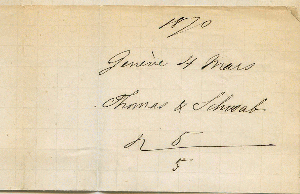 1870
Genève 4 Mars
Thomas & Schwab
5
5